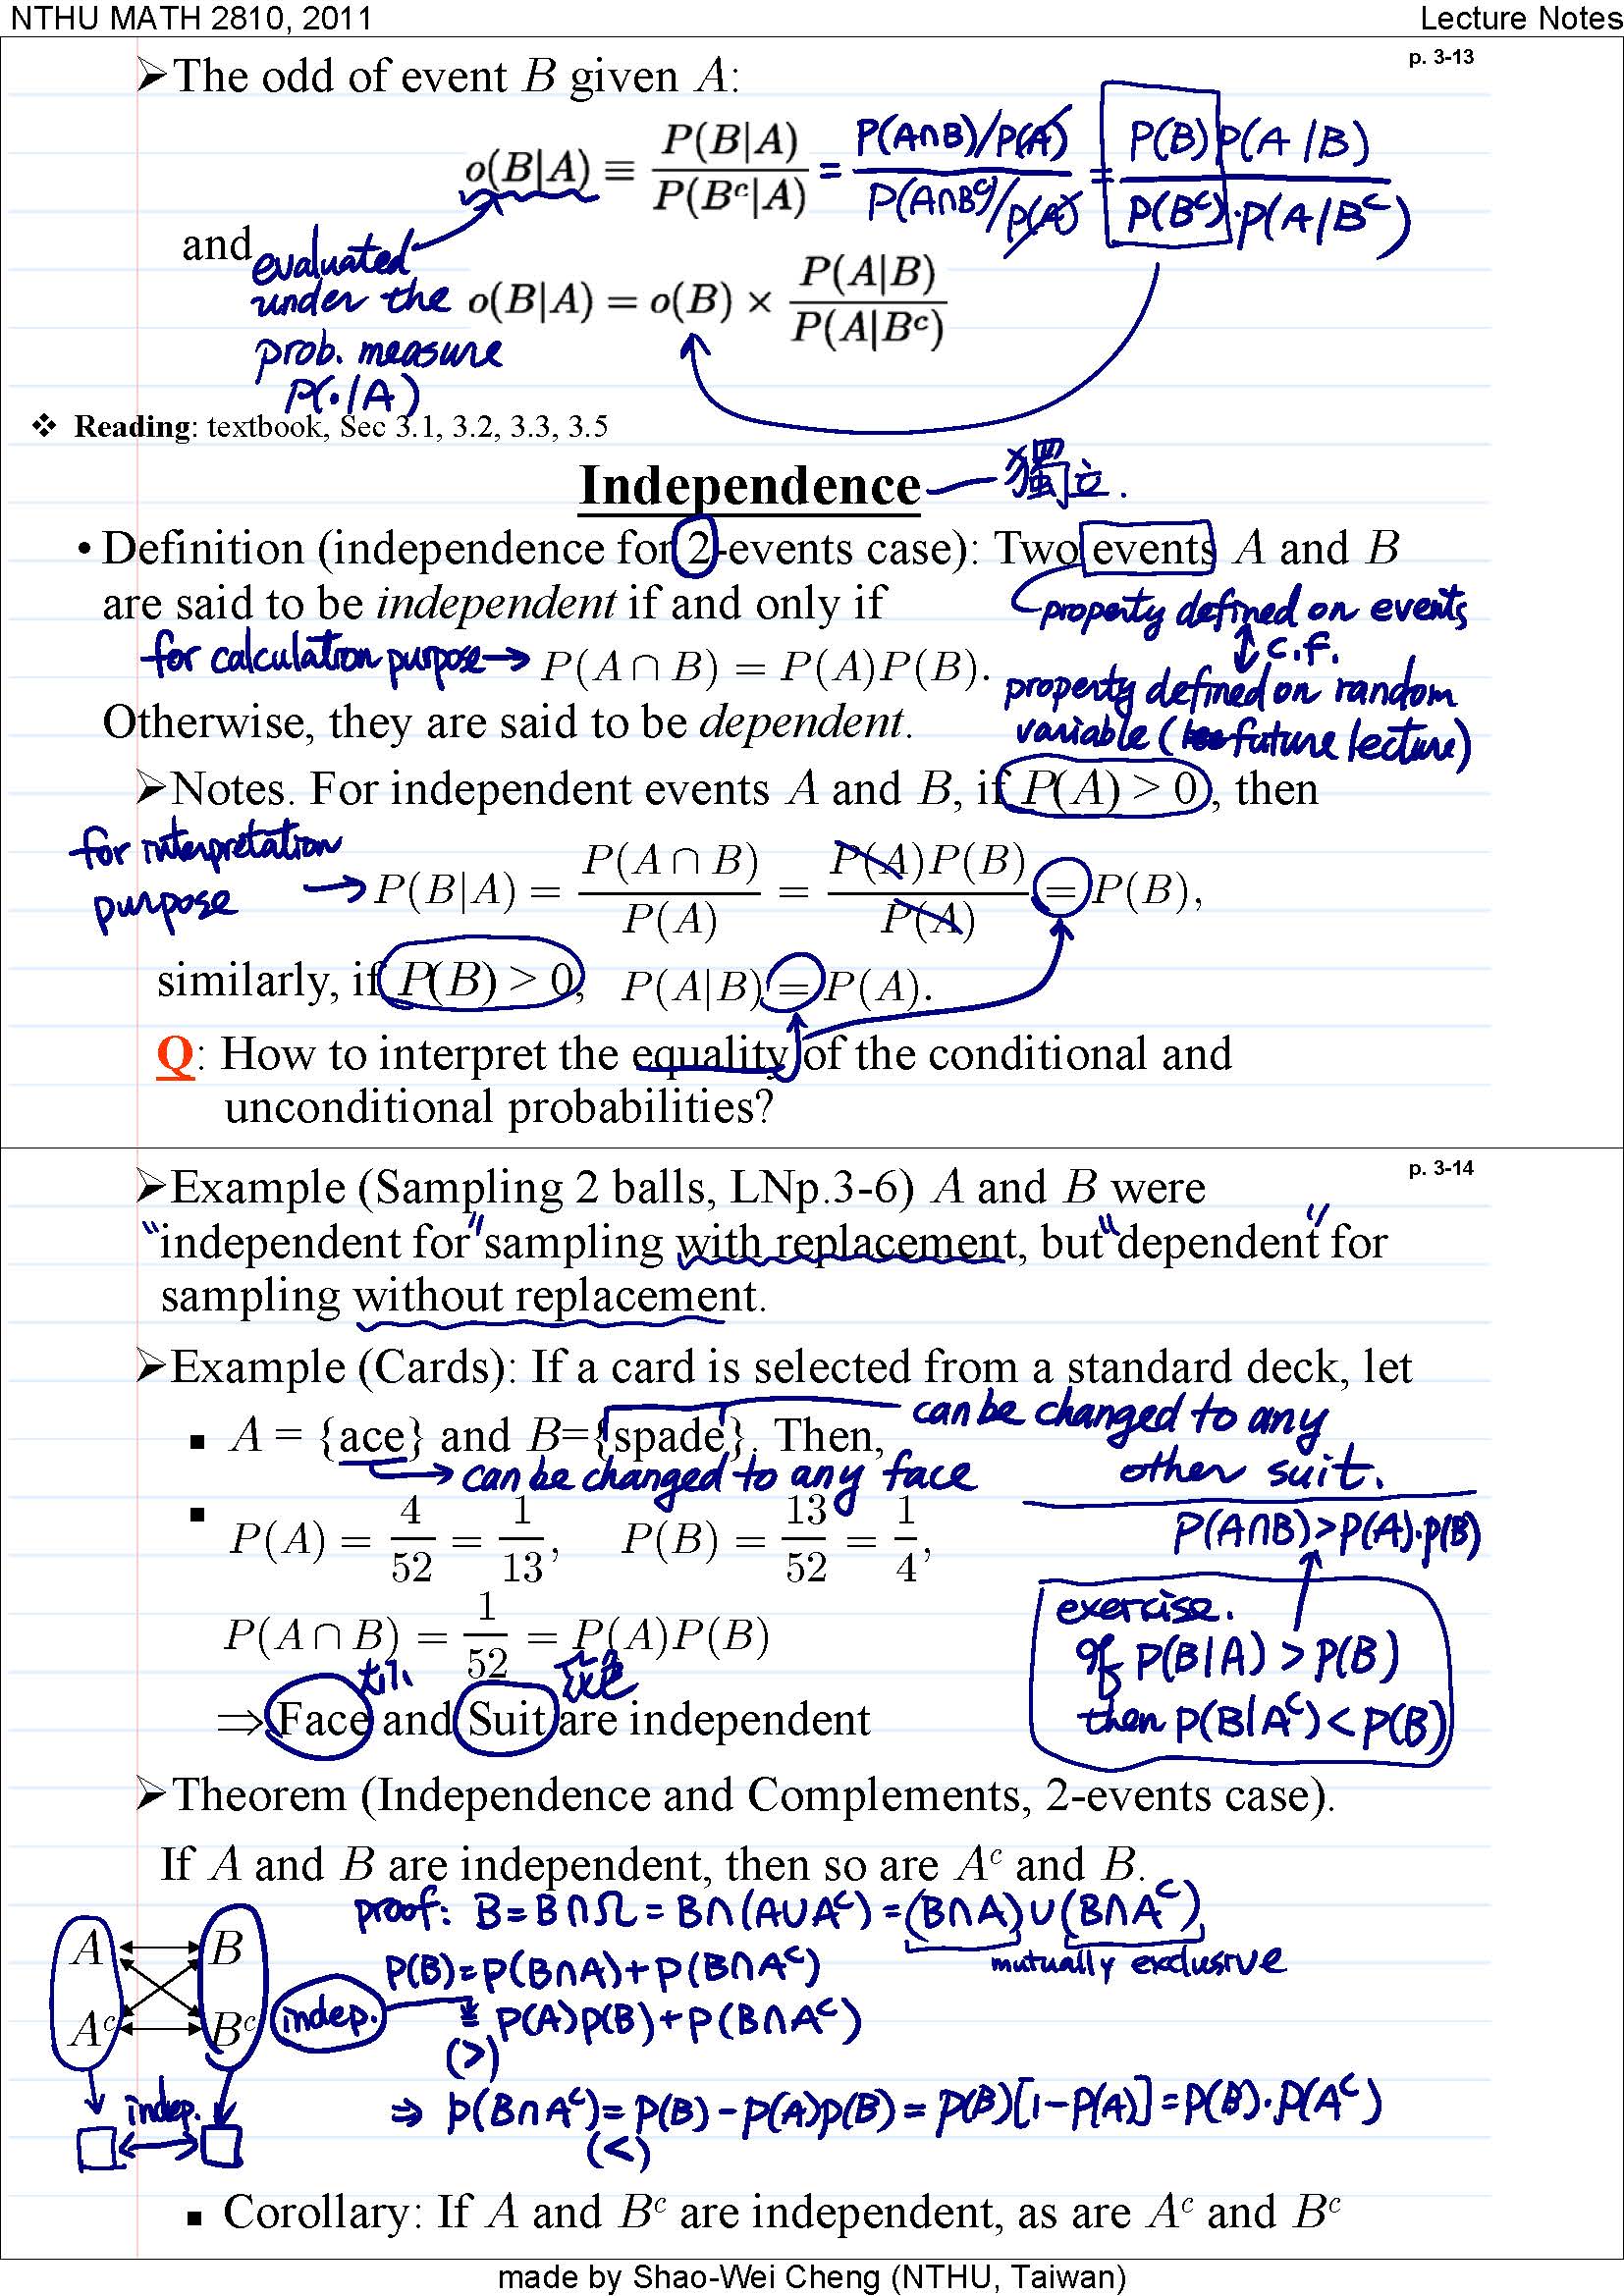 NTHU MATH 2810, 2011 Lecture Notes
p. 3-13
➢The odd of event B given A:
o(B|A) ≡ P(B|A) / P(Bᶜ|A) = P(A∩B)/P(A) / P(A∩Bᶜ)/P(A) = P(B)P(A|B) / P(Bᶜ)·P(A|Bᶜ)
and
evaluated
under the
prob. measure
P(·|A)
o(B|A) = o(B) × P(A|B) / P(A|Bᶜ)
❖ Reading: textbook, Sec 3.1, 3.2, 3.3, 3.5
Independence — 獨立.
• Definition (independence for 2-events case): Two events A and B
are said to be independent if and only if
property defined on events
c.f.
property defined on random
variable (future lecture)
for calculation purpose → P(A ∩ B) = P(A)P(B).
Otherwise, they are said to be dependent.
➢Notes. For independent events A and B, if P(A) > 0, then
for interpretation
purpose
→ P(B|A) = P(A ∩ B) / P(A) = P(A)P(B) / P(A) = P(B),
similarly, if P(B) > 0, P(A|B) = P(A).
Q: How to interpret the equality of the conditional and
unconditional probabilities?
p. 3-14
➢Example (Sampling 2 balls, LNp.3-6) A and B were
"independent for" sampling with replacement, but "dependent" for
sampling without replacement.
➢Example (Cards): If a card is selected from a standard deck, let
▪ A = {ace} and B={spade}. Then,
can be changed to any
other suit.
can be changed to any face
▪ P(A) = 4/52 = 1/13, P(B) = 13/52 = 1/4,
P(A ∩ B) = 1/52 = P(A)P(B)
⇒ Face and Suit are independent
P(A∩B)>P(A)·P(B)
exercise.
If P(B|A) > P(B)
then P(B|Aᶜ) < P(B)
➢Theorem (Independence and Complements, 2-events case).
If A and B are independent, then so are Aᶜ and B.
proof: B = B∩Ω = B∩(A∪Aᶜ) = (B∩A)∪(B∩Aᶜ)
mutually exclusive
A B
Aᶜ Bᶜ
indep.
P(B)=P(B∩A)+P(B∩Aᶜ)
indep.
= P(A)P(B)+P(B∩Aᶜ)
(>)
⇒ P(B∩Aᶜ) = P(B) - P(A)P(B) = P(B)[1-P(A)] = P(B)·P(Aᶜ)
(<)
▪ Corollary: If A and Bᶜ are independent, as are Aᶜ and Bᶜ
made by Shao-Wei Cheng (NTHU, Taiwan)